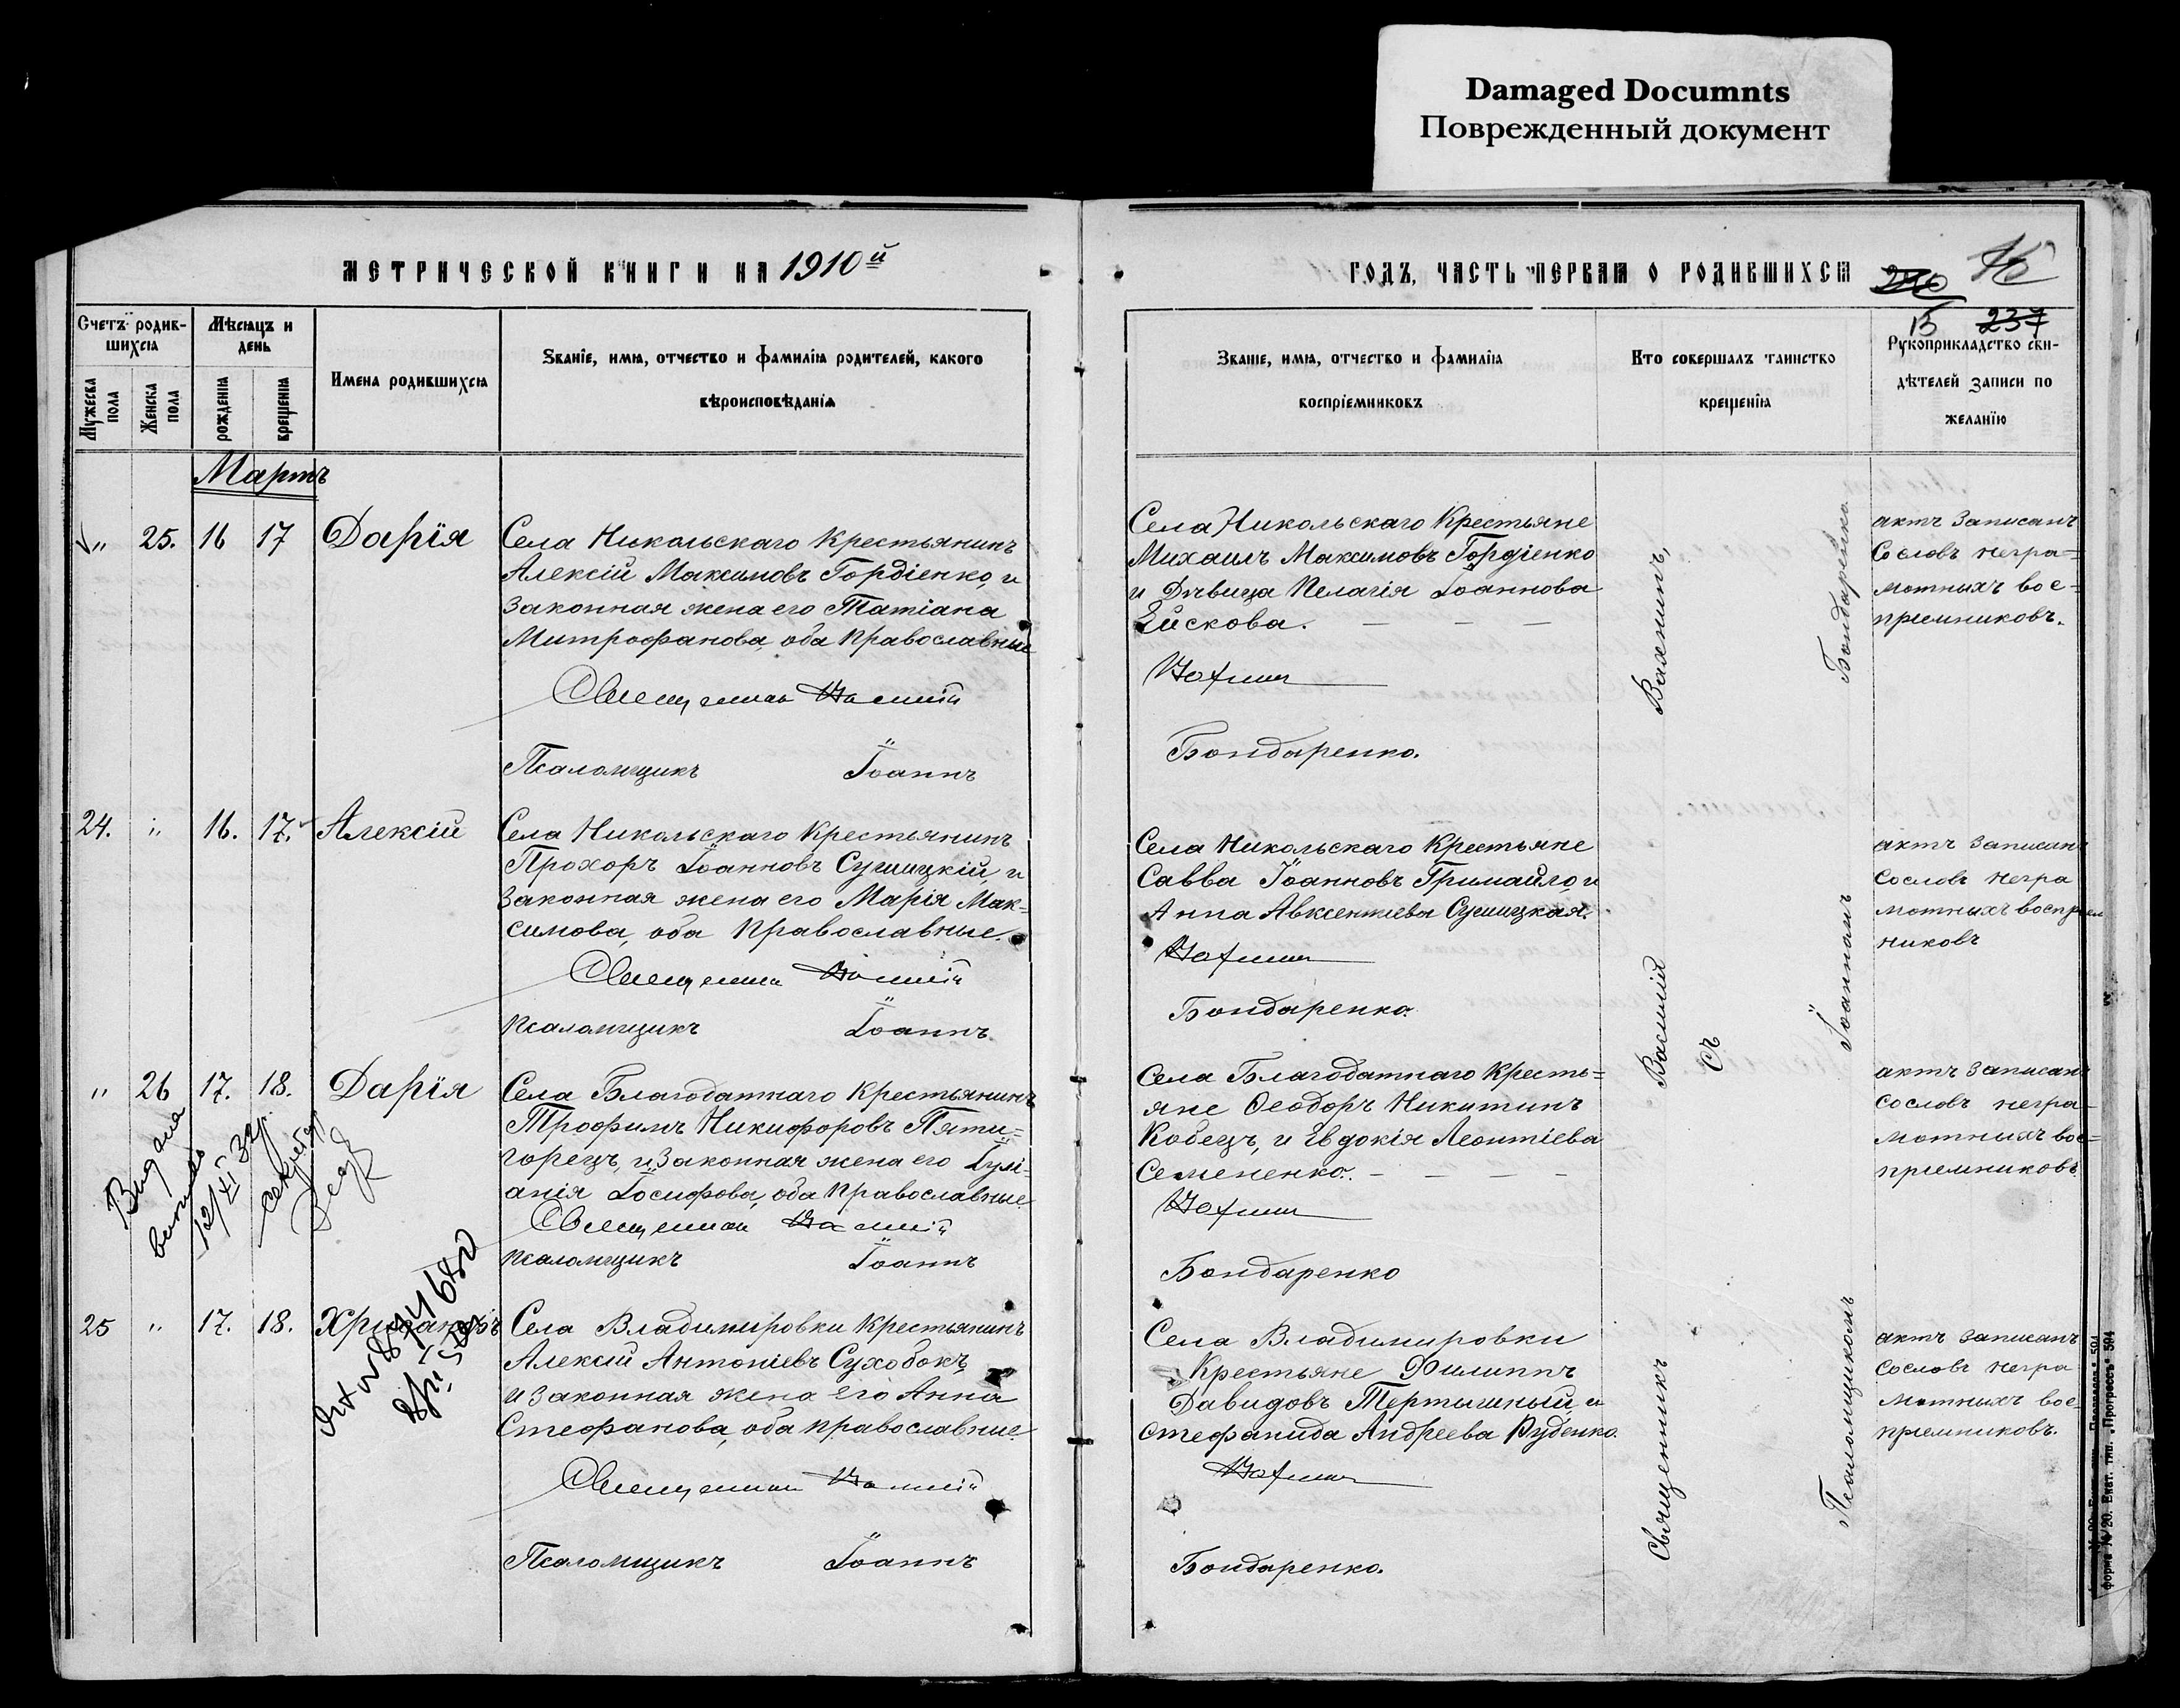 Damaged Documnts
Поврежденный документ
МЕТРИЧЕСКОЙ КНИГИ НА 1910й
Счетъ родив-
шихся
Мѣсяцъ и
день
Имена родившихся
Званіе, имя, отчество и фамилія родителей, какого
вѣроисповѣданія
Мужеска
пола
Женска
пола
рожденія
крещенія
Мартъ
„ 25. 16 17 Дарія
Села Никольскаго Крестьянинъ
Алексій Максимовъ Гордіенко, и
Законная жена его Татіана
Митрофанова, оба Православные
Священникъ Василій
Псаломщикъ Іоаннъ
24. „ 16. 17. Алексій
Села Никольскаго Крестьянинъ
Прохоръ Іоанновъ Сушицкій, и
Законная жена его Марія Мак=
симова, оба Православные.
Священникъ Василій
Псаломщикъ Іоаннъ
„ 26 17. 18. Дарія
Села Благодатнаго Крестьянинъ
Трофимъ Никифоровъ Пяти=
горецъ, и Законная жена его Іулі-
анія Іосифова, оба Православные
Священникъ Василій
Псаломщикъ Іоаннъ
25 „ 17. 18. Хрисанфъ
Села Владимировки Крестьянинъ
Алексій Антоніевъ Сухобокъ
и Законная жена его Анна
Стефанова, оба православные.
Священникъ Василій
Псаломщикъ Іоаннъ
ГОДЪ, ЧАСТЬ ПЕРВАЯ О РОДИВШИХСЯ
15 237
Званіе, имя, отчество и фамилія
воспріемниковъ
Кто совершалъ таинство
крещенія
Рукоприкладство сви-
дѣтелей записи по
желанію
Села Никольскаго Крестьяне
Михаилъ Максимовъ Гордіенко
и Дѣвица Пелагія Іоаннова
Ейскова.
Вахнинъ
Бондаренко.
Села Никольскаго Крестьяне
Савва Іоанновъ Гримайло, и
Анна Авксентіева Сушицкая.
Вахнинъ
Бондаренко.
Села Благодатнаго Кресть=
яне Ѳеодоръ Никитинъ
Кобецъ, и Евдокія Леонтіева
Семененко.
Вахнинъ
Бондаренко
Села Владимировки
Крестьяне Филиппъ
Давидовъ Тертышный, и
Стефанида Андреева Руденко.
Вахнинъ
Бондаренко.
Священникъ Василій Вахнинъ,
съ
Псаломщикомъ Іоанномъ Бондаренко
актъ записанъ
Со словъ негра=
мотныхъ вос=
пріемниковъ.
актъ записанъ
Со словъ негра
мотныхъ воспріем
никовъ
актъ записанъ
Со словъ негра-
мотныхъ вос=
пріемниковъ.
актъ записанъ
Со словъ негра
мотныхъ вос-
пріемниковъ.
форма № 20. Екат. тип. „Прогрессъ" 594